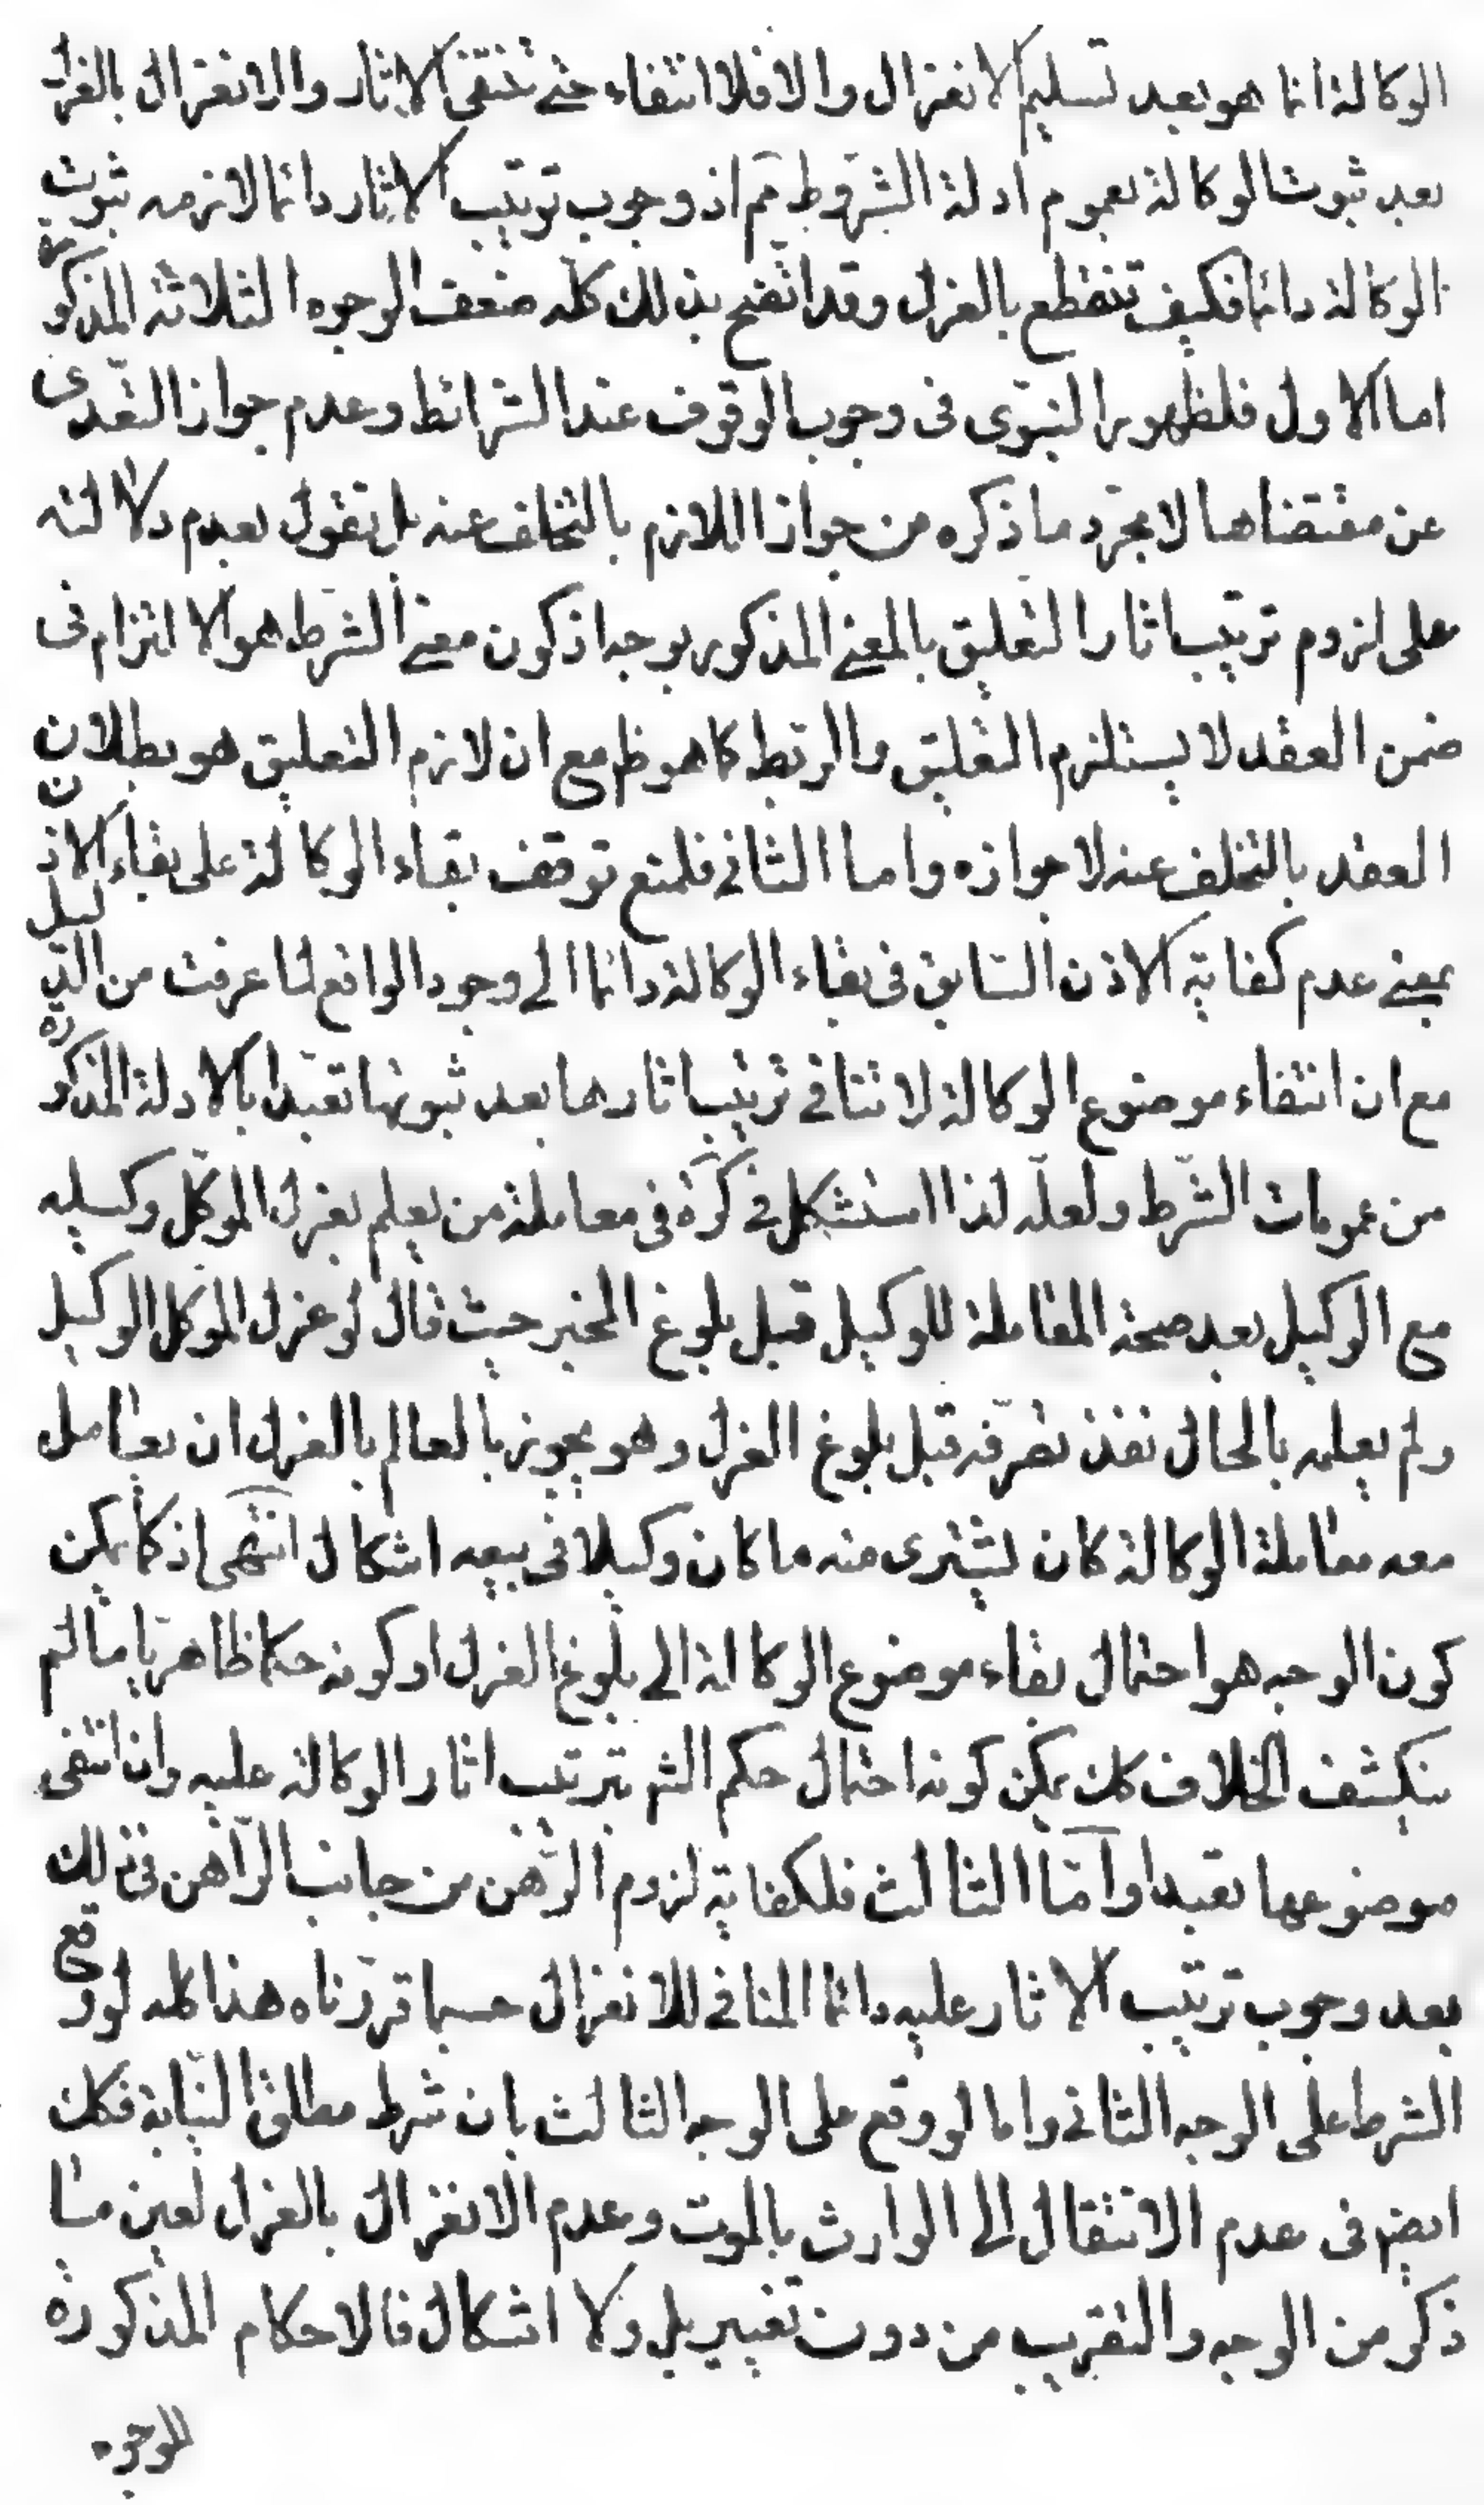 الوكالة انما هو بعد تسليم الانعزال والا فلا انتفاء حتى تنتفى الاثار والانعزال بالعزل
بعد ثبوت الوكالة بعموم ادلة الشروط مم اذ وجوب ترتيب الاثار دائما لازمه ثبوت
الوكالة دائما فكيف تنقطع بالعزل وقد اتضح بذلك كله ضعف الوجوه الثلاثة المذكورة
اما الاول فلظهور النبوى فى وجوب الوقوف عند الشرائط وعدم جواز التعدى
عن مقتضاها لا مجرد ما ذكره من جواز اللازم بالتخلف عنه بل نقول بعدم دلالته
على لزوم ترتيب اثار التعليق بالمعنى المذكور بوجه اذ كون معنى الشرط هو الالتزام فى
ضمن العقد لا يستلزم التعليق والربط كما هو ظ مع ان لازم التعليق هو بطلان
العقد بالتخلف عنه لا جوازه واما الثانى فلمنع توقف بقاء الوكالة على بقاء الاذن
بمعنى عدم كفاية الاذن السابق فى بقاء الوكالة دائما الى وجود الرافع لما عرفت من الدليل
مع ان انتفاء موضوع الوكالة لا تنافى ترتيب اثارها بعد ثبوتها تعبدا بالادلة المذكورة
من عمومات الشرط ولعله لذا استشكل فى كره فى معاملة من يعلم بعزل الموكل وكيله
مع الوكيل بعد صحة المعاملة للوكيل قبل بلوغ الخبر حيث قال لو عزل الموكل الوكيل
ولم يعلمه بالحال نفذ تصرفه قبل بلوغ العزل وهو يجوز بالعالم بالعزل ان يعامل
معه معاملة الوكالة كان يشترى منه ما كان وكيلا فى بيعه اشكال انتهى اذ كما يمكن
كون الوجه هو احتمال بقاء موضوع الوكالة الى بلوغ العزل او كونه حكما ظاهريا ما لم
ينكشف الخلاف كك يمكن كونه احتمال حكم الشم بترتيب اثار الوكالة عليه وان انتفى
موضوعها تعبدا واما الثالث فلكفاية لزوم الرهن من جانب الراهن فى ذلك
بعد وجوب ترتيب الاثار عليه دائما المنافى للانعزال حسبما قررناه هذا كله لو وقع
الشرط على الوجه الثانى واما لو وقع على الوجه الثالث بان شرط مطلق النيابة فكك
ايضم فى عدم الانتقال الى الوارث بالموت وعدم الانعزال بالعزل لعين ما
ذكر من الوجه والتقريب من دون تغيير بل ولا اشكال فالاحكام المذكورة
للوجوه